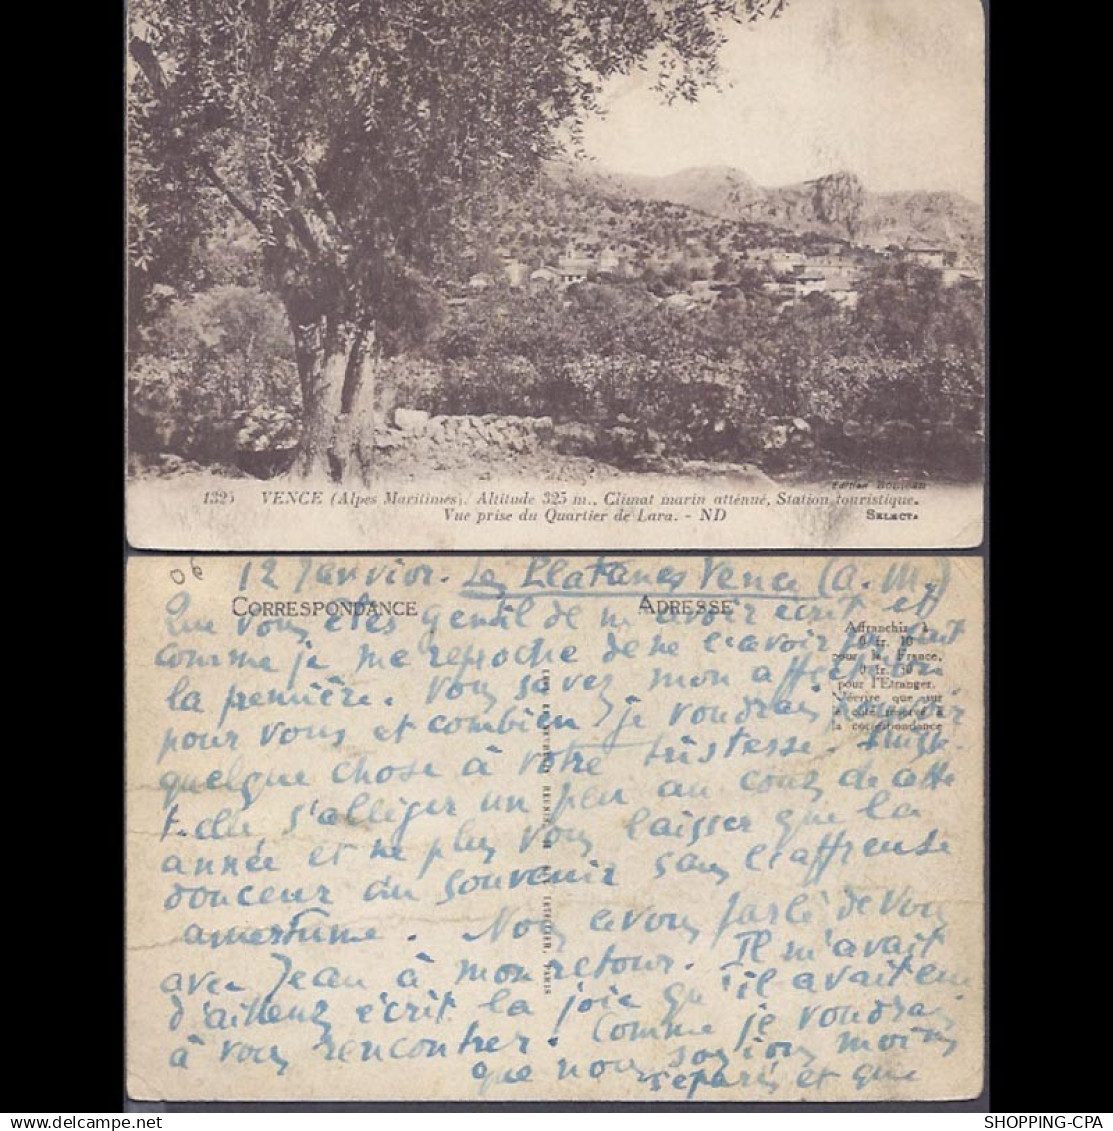 Edition BOUTEAU
1325 VENCE (Alpes Maritimes). Altitude 325 m., Climat marin atténué, Station touristique.
Vue prise du Quartier de Lara. - ND SELECTA
06
12 Janvier. Les Platanes Vence (A.M.)
CORRESPONDANCE ADRESSE
Affranchir à
0 fr. 10
pour la France,
pour l'Etranger.
N'écrire que sur
le côté réservé à
la correspondance
Que vous êtes gentil de m'avoir écrit et
comme je me reproche de ne l'avoir fait
la première. Vous savez mon affection
pour vous et combien je voudrais pouvoir
quelque chose à votre tristesse. Puisse-
t-elle s'alléger un peu au cours de cette
année et ne plus vous laisser que la
douceur du souvenir sans l'affreuse
amertume. Nous avons parlé de vous
avec Jean à mon retour. Il m'avait
d'ailleurs écrit la joie qu'il avait eue
à vous rencontrer. Comme je voudrais
que nous soyions moins
séparés et que
SHOPPING-CPA